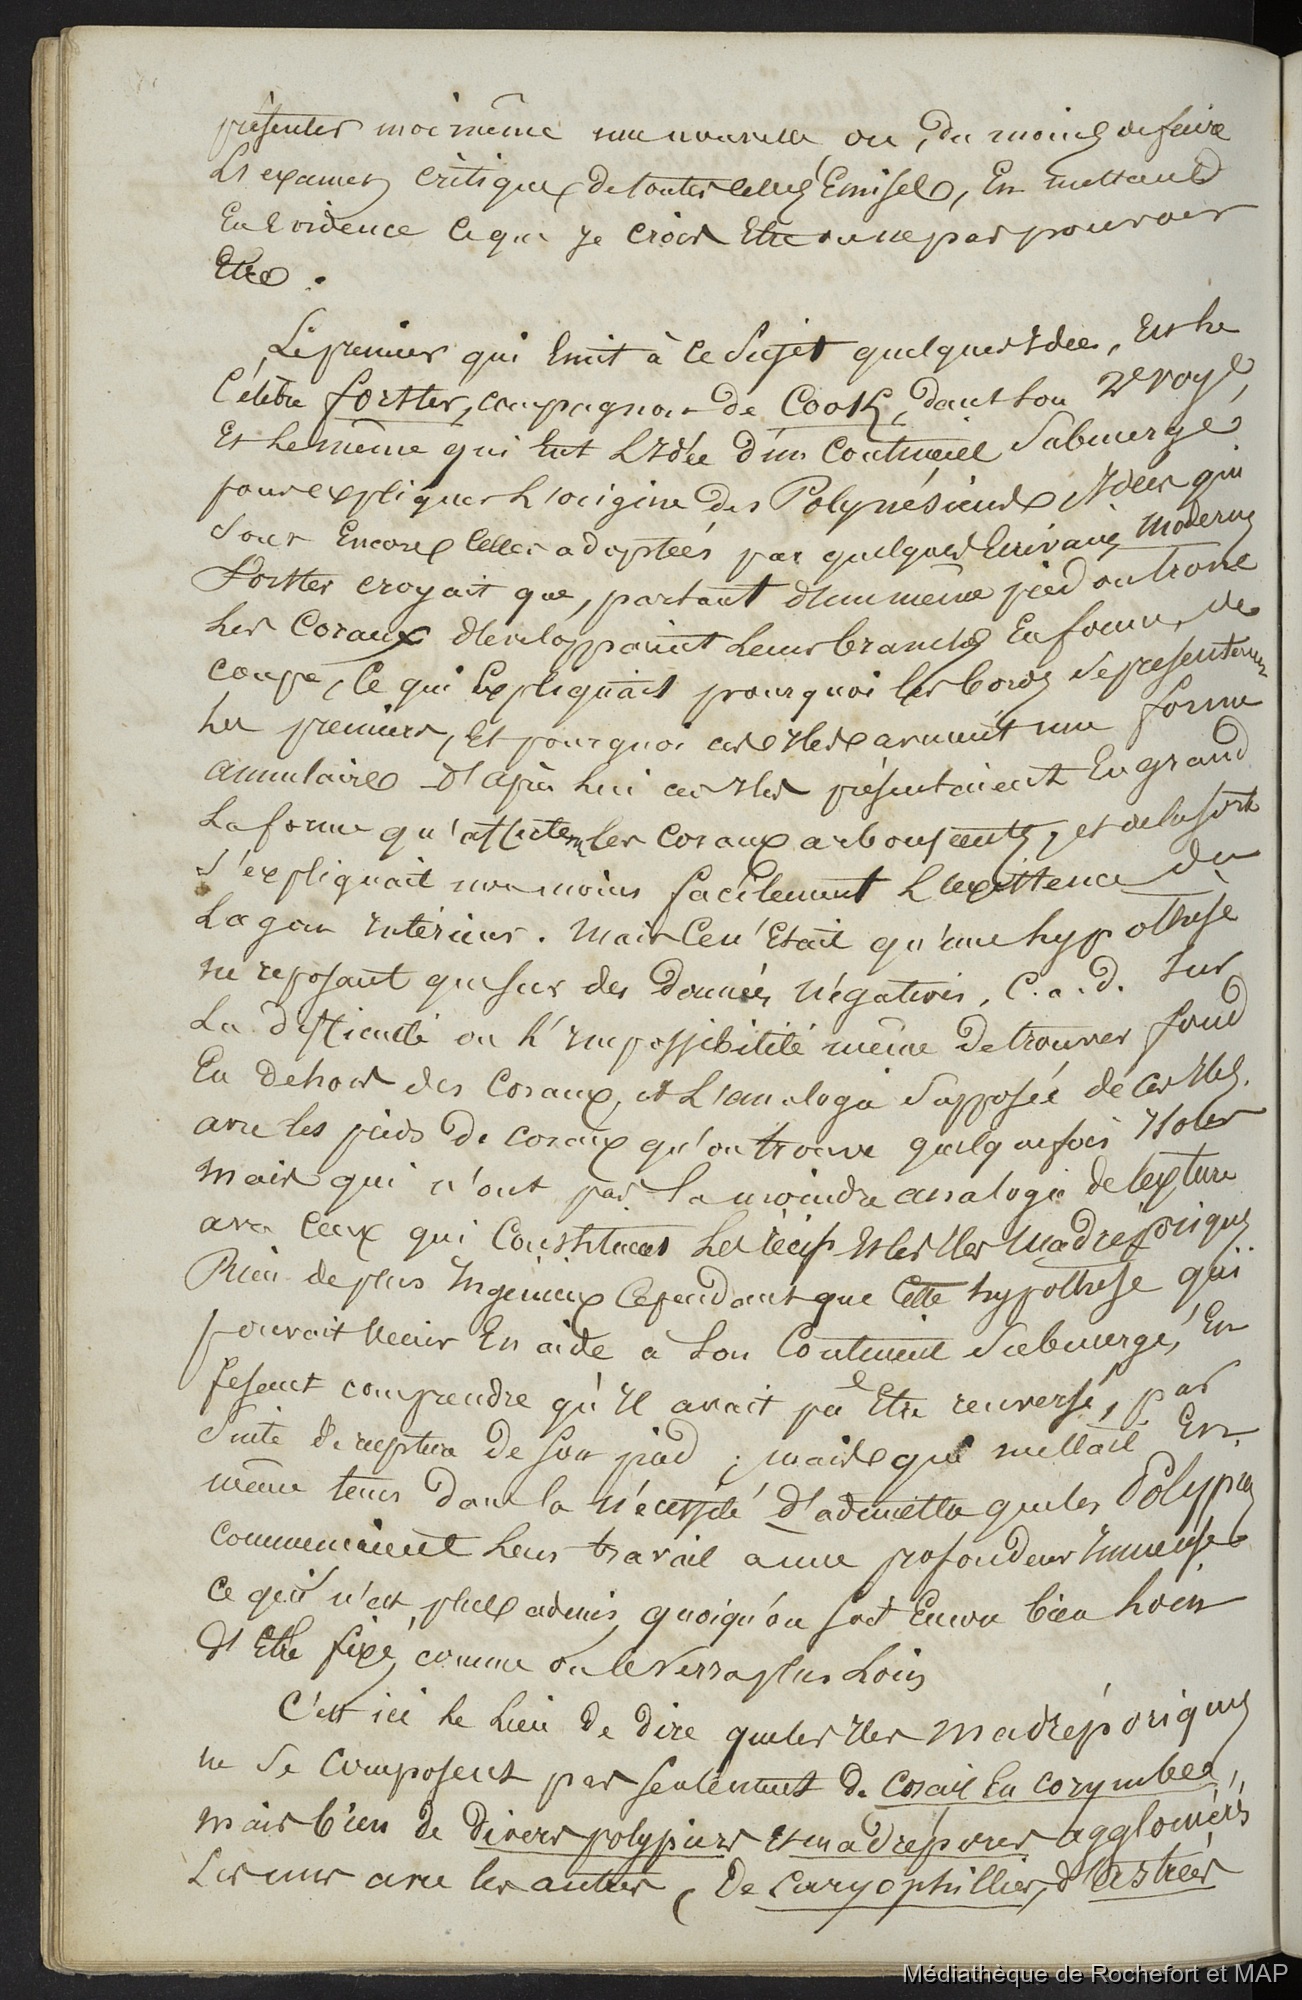 présenter moi même une nouvelle ou, du moins de faire
Les examen critique de toutes celles Emises, En mettant
En Evidence ce que je crois Etre ou ne pas pouvoir
Etre.
Le premier qui Emit à ce Sujet quelques Idées, Est le
Célèbre forster, compagnon de Cook, dans son 2e voye,
Et le même qui Eut L'Idée d'un Continent Submergé
pour expliquer L'origine des Polynésiens, Idées qui
sont Encore celles adoptées par quelques Ecrivains modernes
Forster croyait que, partant d'un même pied ou tronc
Les Coraux développaient Leurs branches En forme, de
coupe, Ce qui Expliquait pourquoi les bords se présentaient
les premiers, Et pourquoi ces Iles avaient une forme
annulaire. D'après Lui ces Iles présentaient En grand
La forme qu'affectent les Coraux arborescents, et de la sorte
s'expliquait non moins facilement L'existence du
Lagon Intérieur. Mais Ce n'Etait qu'une hypothèse
ne reposant que sur des Données Négatives, C.a.d. sur
La difficulté ou L'Impossibilité même de trouver fond
En dehors des Coraux, et L'analogie Supposée de ces Iles.
avec les pieds de coraux qu'on trouve quelquefois Isolés
Mais qui n'ont pas La moindre analogie de texture
avec Ceux qui Constituent Les récifs Et les Iles Madréporiques
Rien de plus Ingénieux Cependant que Cette hypothèse qui
pouvait Venir En aide à Son Continent Submergé, En
fesant comprendre qu'Il avait pû Etre renversé, par
Suite de rupture de son pied ; mais qui mettait En
même tems dans la Nécessité d'admettre que les Polypes
commençaient Leur travail à une profondeur Immense
ce qui n'est plus admis, quoiqu'on soit Encore bien Loin
d'Etre fixé, comme on le Verra plus Loin
C'est ici le Lieu de dire que les Iles Madréporiques
ne Se Composent pas seulement de Corail En corymbes,
Mais bien de divers polypiers Et madrépores agglomérés
Les uns avec les autres, De Caryophillies, d'astrées
Médiathèque de Rochefort et MAP